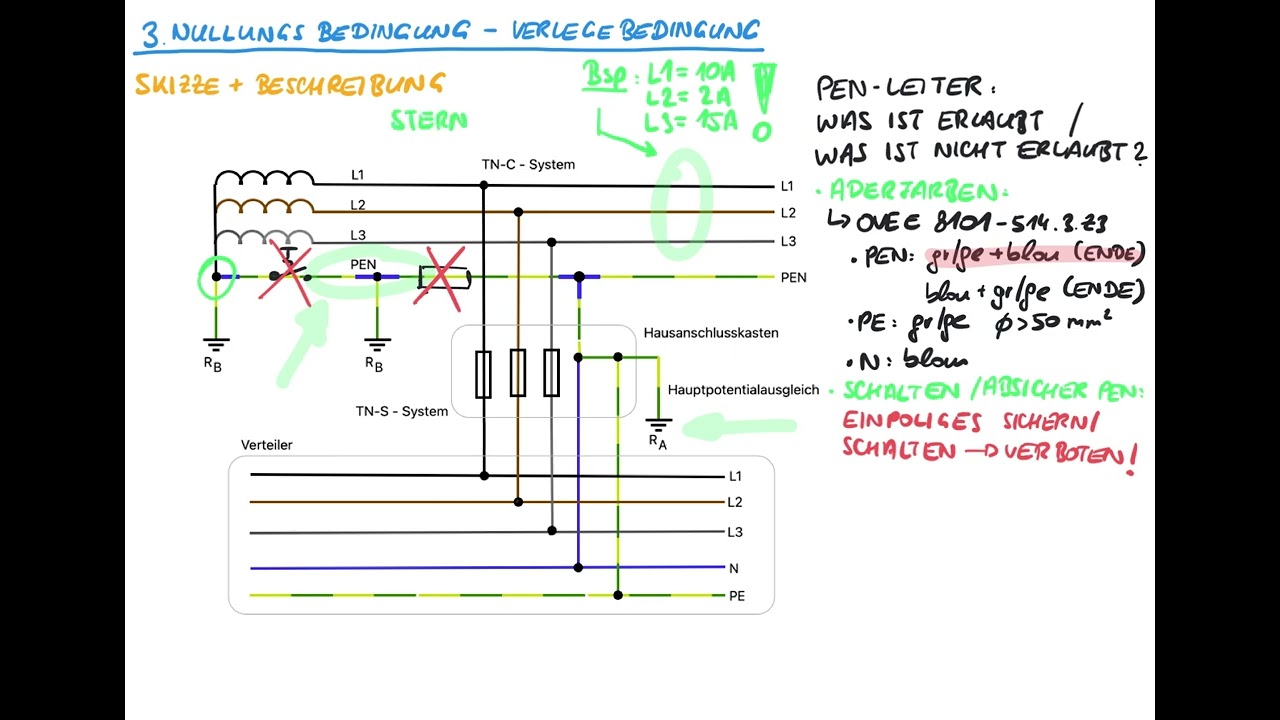 3. NULLUNGS BEDINGUNG – VERLEGE BEDINGUNG
SKIZZE + BESCHREIBUNG
STERN
Bsp: L1 = 10A
L2 = 2A
L3 = 15A
!
TN-C - System
L1
L1
L2
L2
L3
L3
PEN
PEN
R_B
R_B
Hausanschlusskasten
Hauptpotentialausgleich
TN-S - System
R_A
Verteiler
L1
L2
L3
N
PE
PEN-LEITER:
WAS IST ERLAUBT /
WAS IST NICHT ERLAUBT?
· ADERFARBEN:
↳ OVE E 8101-514.3.Z3
· PEN: gr/ge + blau (ENDE)
blau + gr/ge (ENDE)
· PE: gr/ge ϕ > 50 mm²
· N: blau
· SCHALTEN / ABSICHER PEN:
EINPOLIGES SICHERN/
SCHALTEN → VERBOTEN!